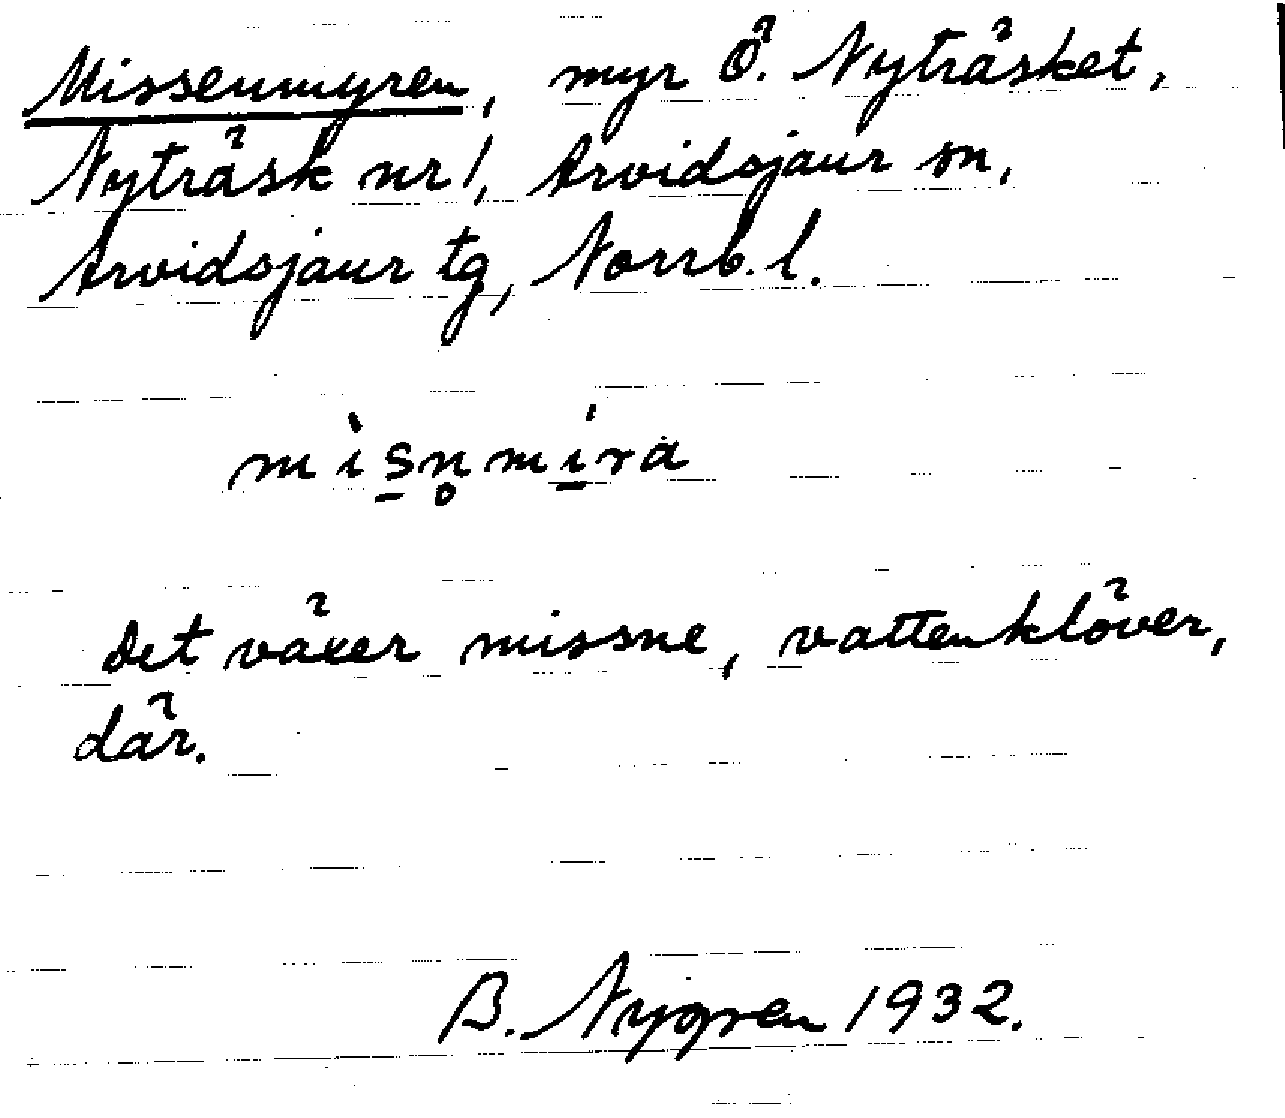 Missenmyren, myr Ö. Nyträsket,
Nyträsk nr 1, Arvidsjaur sn,
Arvidsjaur tg, Norrb. l.
mìs̠n̥mi̠̍ra
Det växer missne, vattenklöver,
där.
B. Nygren 1932.